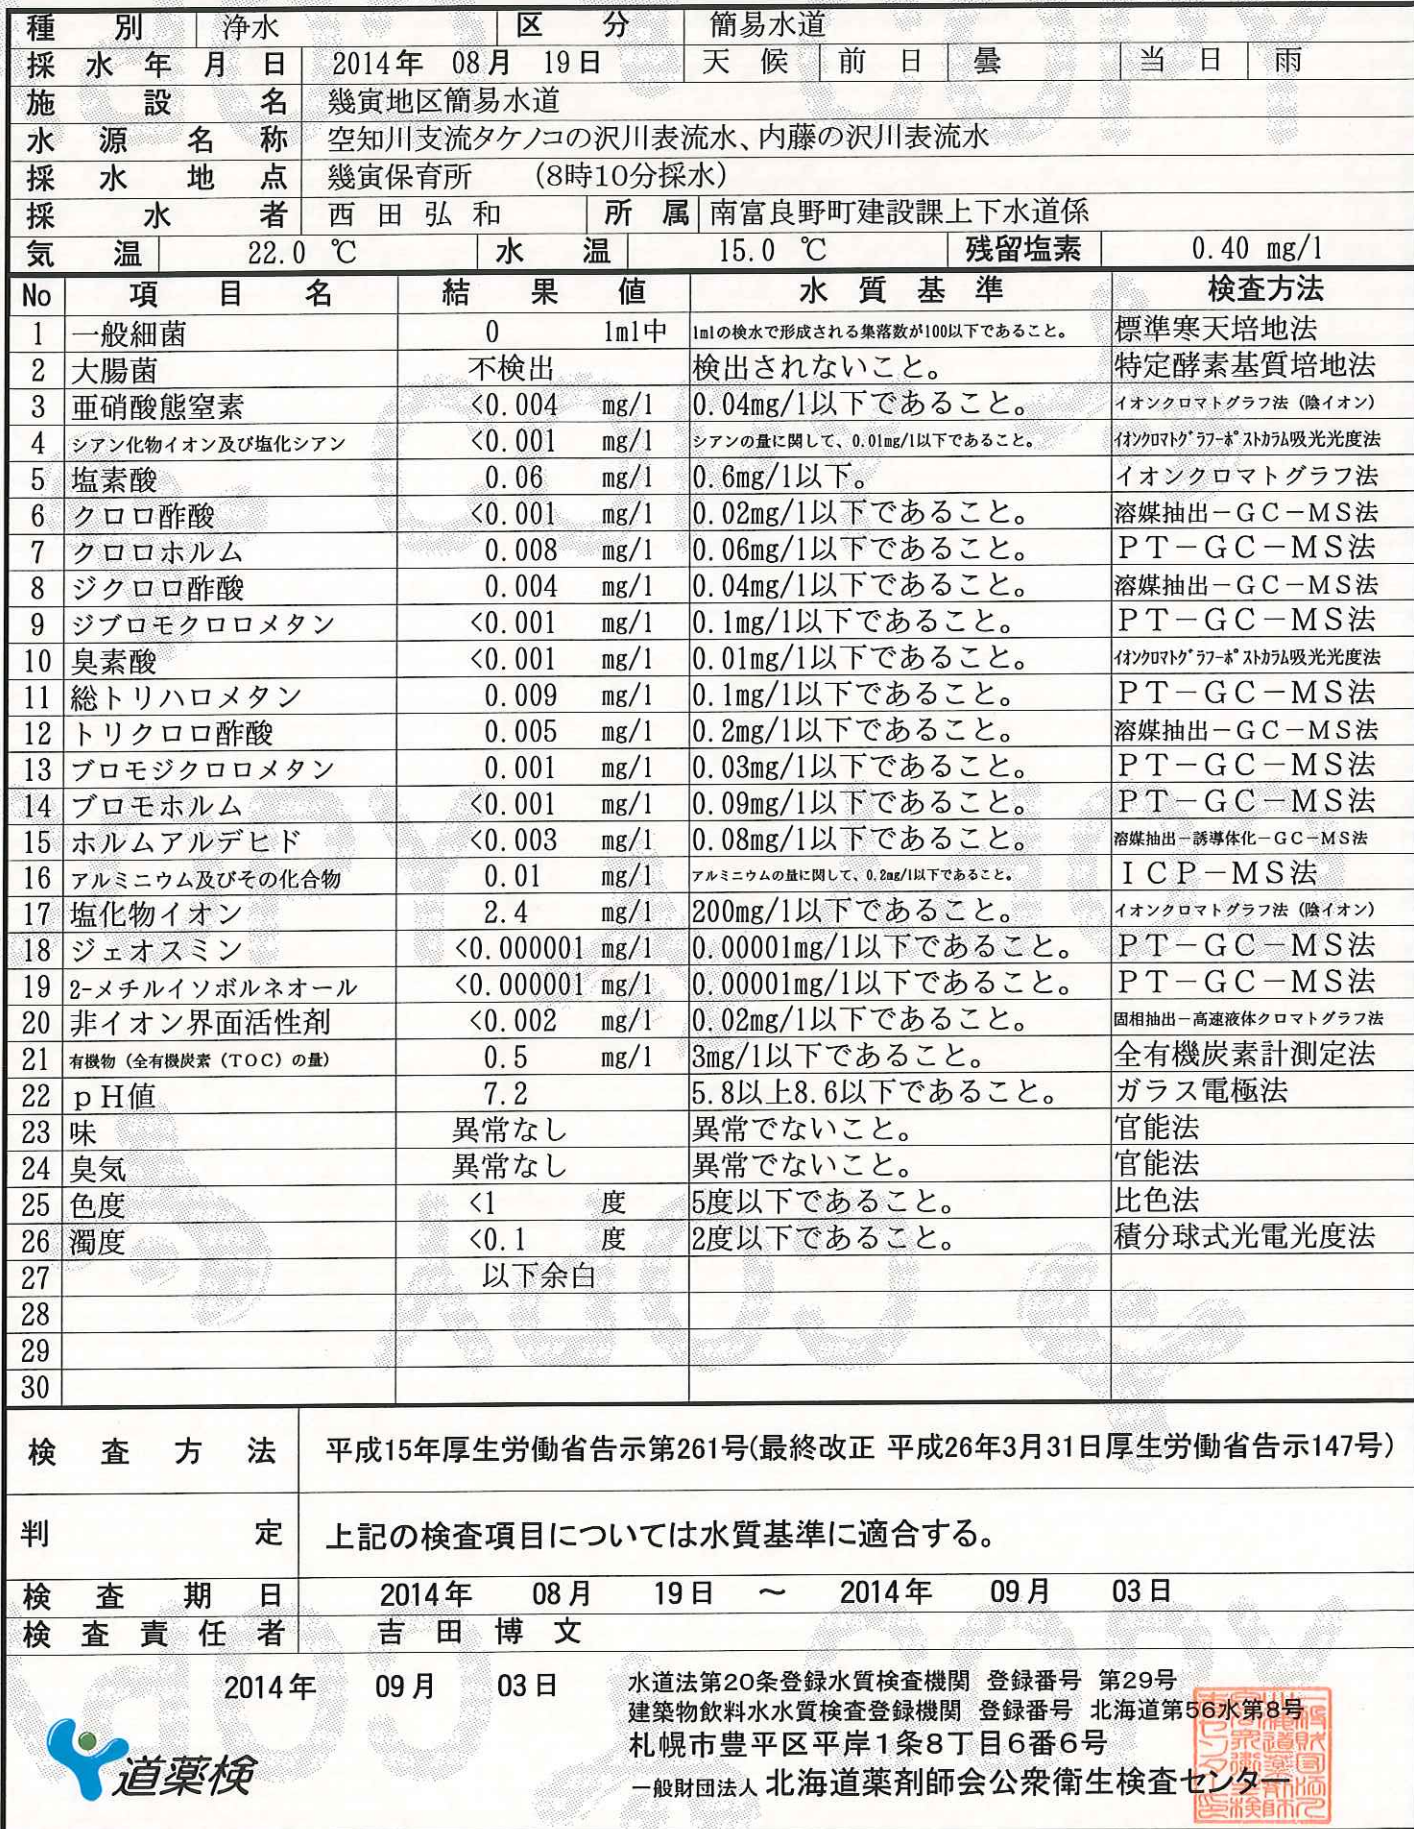 種別 浄水 区分 簡易水道
採水年月日 2014年 08月 19日 天候 前日 曇 当日 雨
施設名 幾寅地区簡易水道
水源名称 空知川支流タケノコの沢川表流水、内藤の沢川表流水
採水地点 幾寅保育所 (8時10分採水)
採水者 西田弘和 所属 南富良野町建設課上下水道係
気温 22.0 ℃ 水温 15.0 ℃ 残留塩素 0.40 mg/l
No 項目名 結果値 水質基準 検査方法
1 一般細菌 0 1ml中 1mlの検水で形成される集落数が100以下であること。 標準寒天培地法
2 大腸菌 不検出 検出されないこと。 特定酵素基質培地法
3 亜硝酸態窒素 <0.004 mg/l 0.04mg/l以下であること。 イオンクロマトグラフ法（陰イオン）
4 シアン化物イオン及び塩化シアン <0.001 mg/l シアンの量に関して、0.01mg/l以下であること。 イオンクロマトグラフ-ポストカラム吸光光度法
5 塩素酸 0.06 mg/l 0.6mg/l以下。 イオンクロマトグラフ法
6 クロロ酢酸 <0.001 mg/l 0.02mg/l以下であること。 溶媒抽出－GC－MS法
7 クロロホルム 0.008 mg/l 0.06mg/l以下であること。 PT－GC－MS法
8 ジクロロ酢酸 0.004 mg/l 0.04mg/l以下であること。 溶媒抽出－GC－MS法
9 ジブロモクロロメタン <0.001 mg/l 0.1mg/l以下であること。 PT－GC－MS法
10 臭素酸 <0.001 mg/l 0.01mg/l以下であること。 イオンクロマトグラフ-ポストカラム吸光光度法
11 総トリハロメタン 0.009 mg/l 0.1mg/l以下であること。 PT－GC－MS法
12 トリクロロ酢酸 0.005 mg/l 0.2mg/l以下であること。 溶媒抽出－GC－MS法
13 ブロモジクロロメタン 0.001 mg/l 0.03mg/l以下であること。 PT－GC－MS法
14 ブロモホルム <0.001 mg/l 0.09mg/l以下であること。 PT－GC－MS法
15 ホルムアルデヒド <0.003 mg/l 0.08mg/l以下であること。 溶媒抽出－誘導体化－GC－MS法
16 アルミニウム及びその化合物 0.01 mg/l アルミニウムの量に関して、0.2mg/l以下であること。 ICP－MS法
17 塩化物イオン 2.4 mg/l 200mg/l以下であること。 イオンクロマトグラフ法（陰イオン）
18 ジェオスミン <0.000001 mg/l 0.00001mg/l以下であること。 PT－GC－MS法
19 2-メチルイソボルネオール <0.000001 mg/l 0.00001mg/l以下であること。 PT－GC－MS法
20 非イオン界面活性剤 <0.002 mg/l 0.02mg/l以下であること。 固相抽出－高速液体クロマトグラフ法
21 有機物（全有機炭素（TOC）の量） 0.5 mg/l 3mg/l以下であること。 全有機炭素計測定法
22 pH値 7.2 5.8以上8.6以下であること。 ガラス電極法
23 味 異常なし 異常でないこと。 官能法
24 臭気 異常なし 異常でないこと。 官能法
25 色度 <1 度 5度以下であること。 比色法
26 濁度 <0.1 度 2度以下であること。 積分球式光電光度法
27 以下余白
28
29
30
検査方法 平成15年厚生労働省告示第261号(最終改正 平成26年3月31日厚生労働省告示147号)
判定 上記の検査項目については水質基準に適合する。
検査期日 2014年 08月 19日 ～ 2014年 09月 03日
検査責任者 吉田博文
2014年 09月 03日
水道法第20条登録水質検査機関 登録番号 第29号
建築物飲料水水質検査登録機関 登録番号 北海道第56水第8号
札幌市豊平区平岸1条8丁目6番6号
一般財団法人 北海道薬剤師会公衆衛生検査センター
道薬検